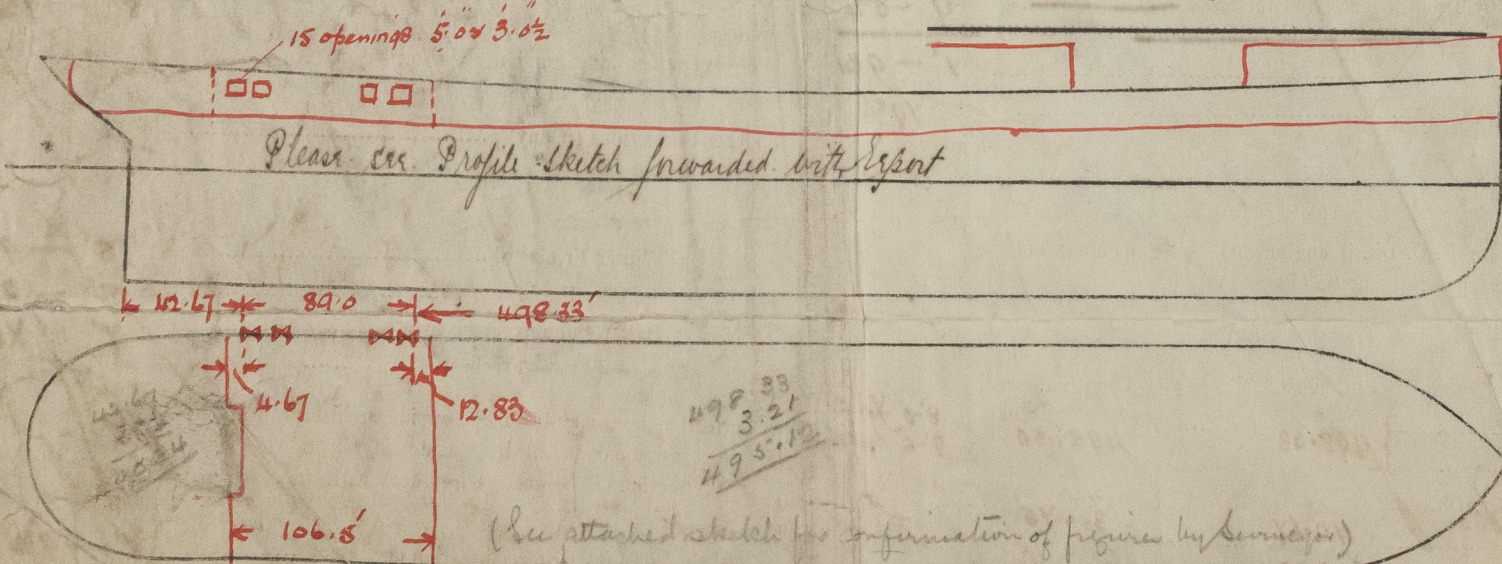 15 openings 5'.0" x 3'.0½
Please see Profile sketch forwarded with Report
42.67 89.0 498.33'
4.67 12.83
498.33
3.21
495.12
106.5'
(See attached sketch for confirmation of figures by Surveyor)